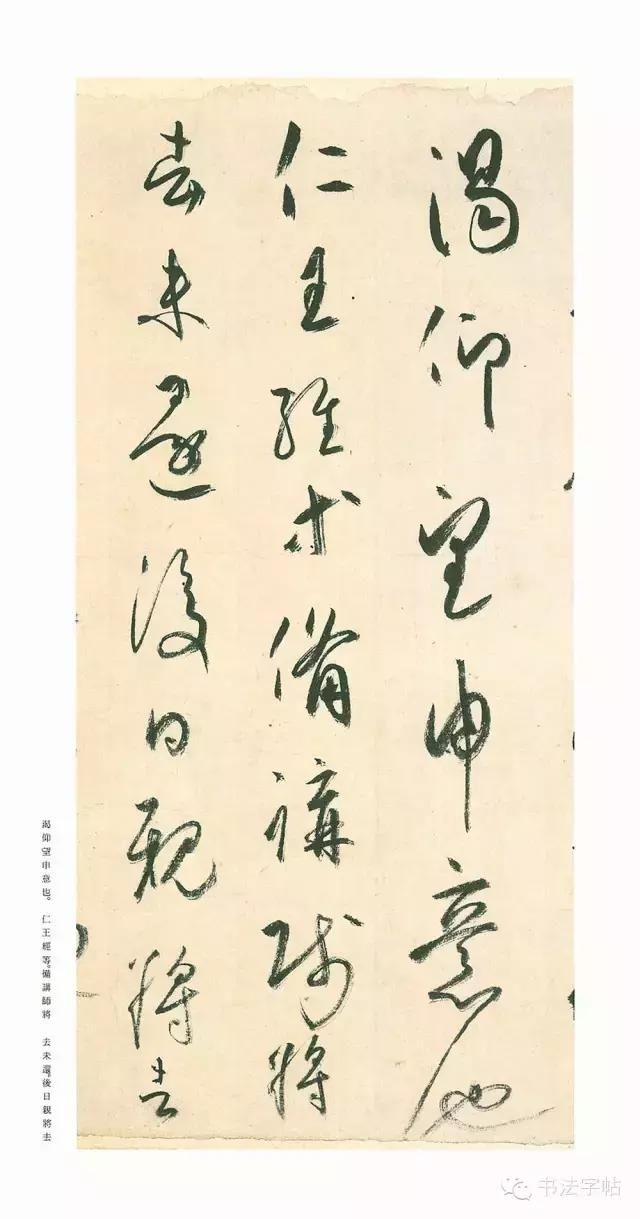 渴仰望申意也
仁王經等備講師將
去未還後日親將去
渴仰望申意也。仁王經等。備講師將 去未還。後日親將去
书法字帖